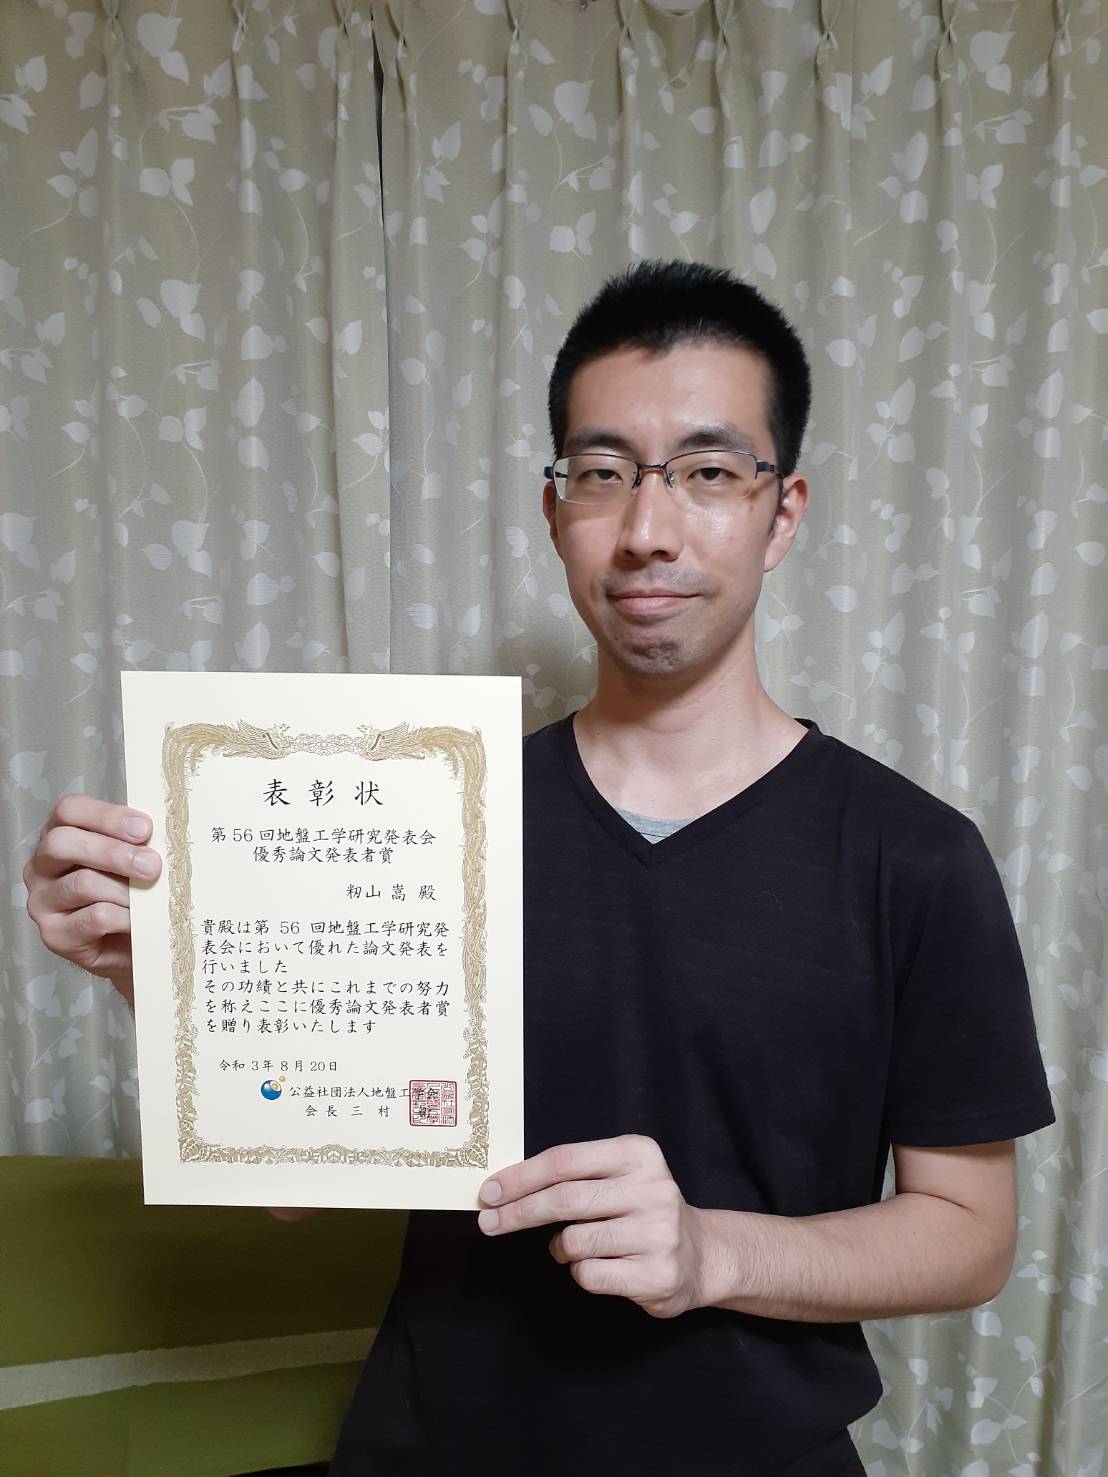 表彰状
第56回地盤工学研究発表会
優秀論文発表者賞
籾山 嵩 殿
貴殿は第 56 回地盤工学研究発
表会において優れた論文発表を
行いました
その功績と共にこれまでの努力
を称えここに優秀論文発表者賞
を贈り表彰いたします
令和3年8月20日
公益社団法人地盤工学会
会長 三村